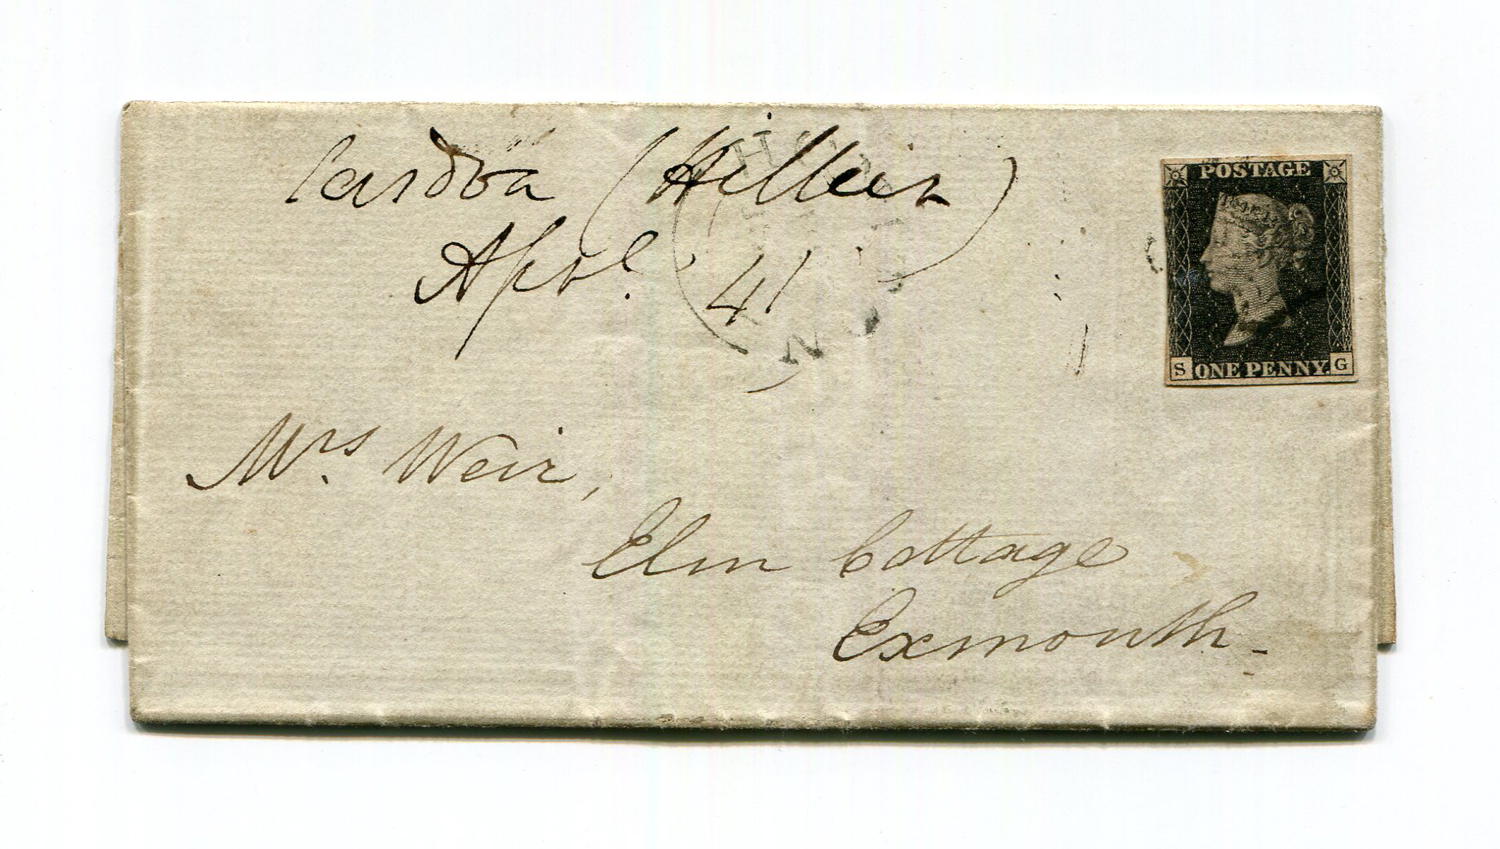 Cardoa (Hillier)
Apl. 41
POSTAGE
S ONE PENNY G
Mrs Weir,
Elm Cottage
Exmouth